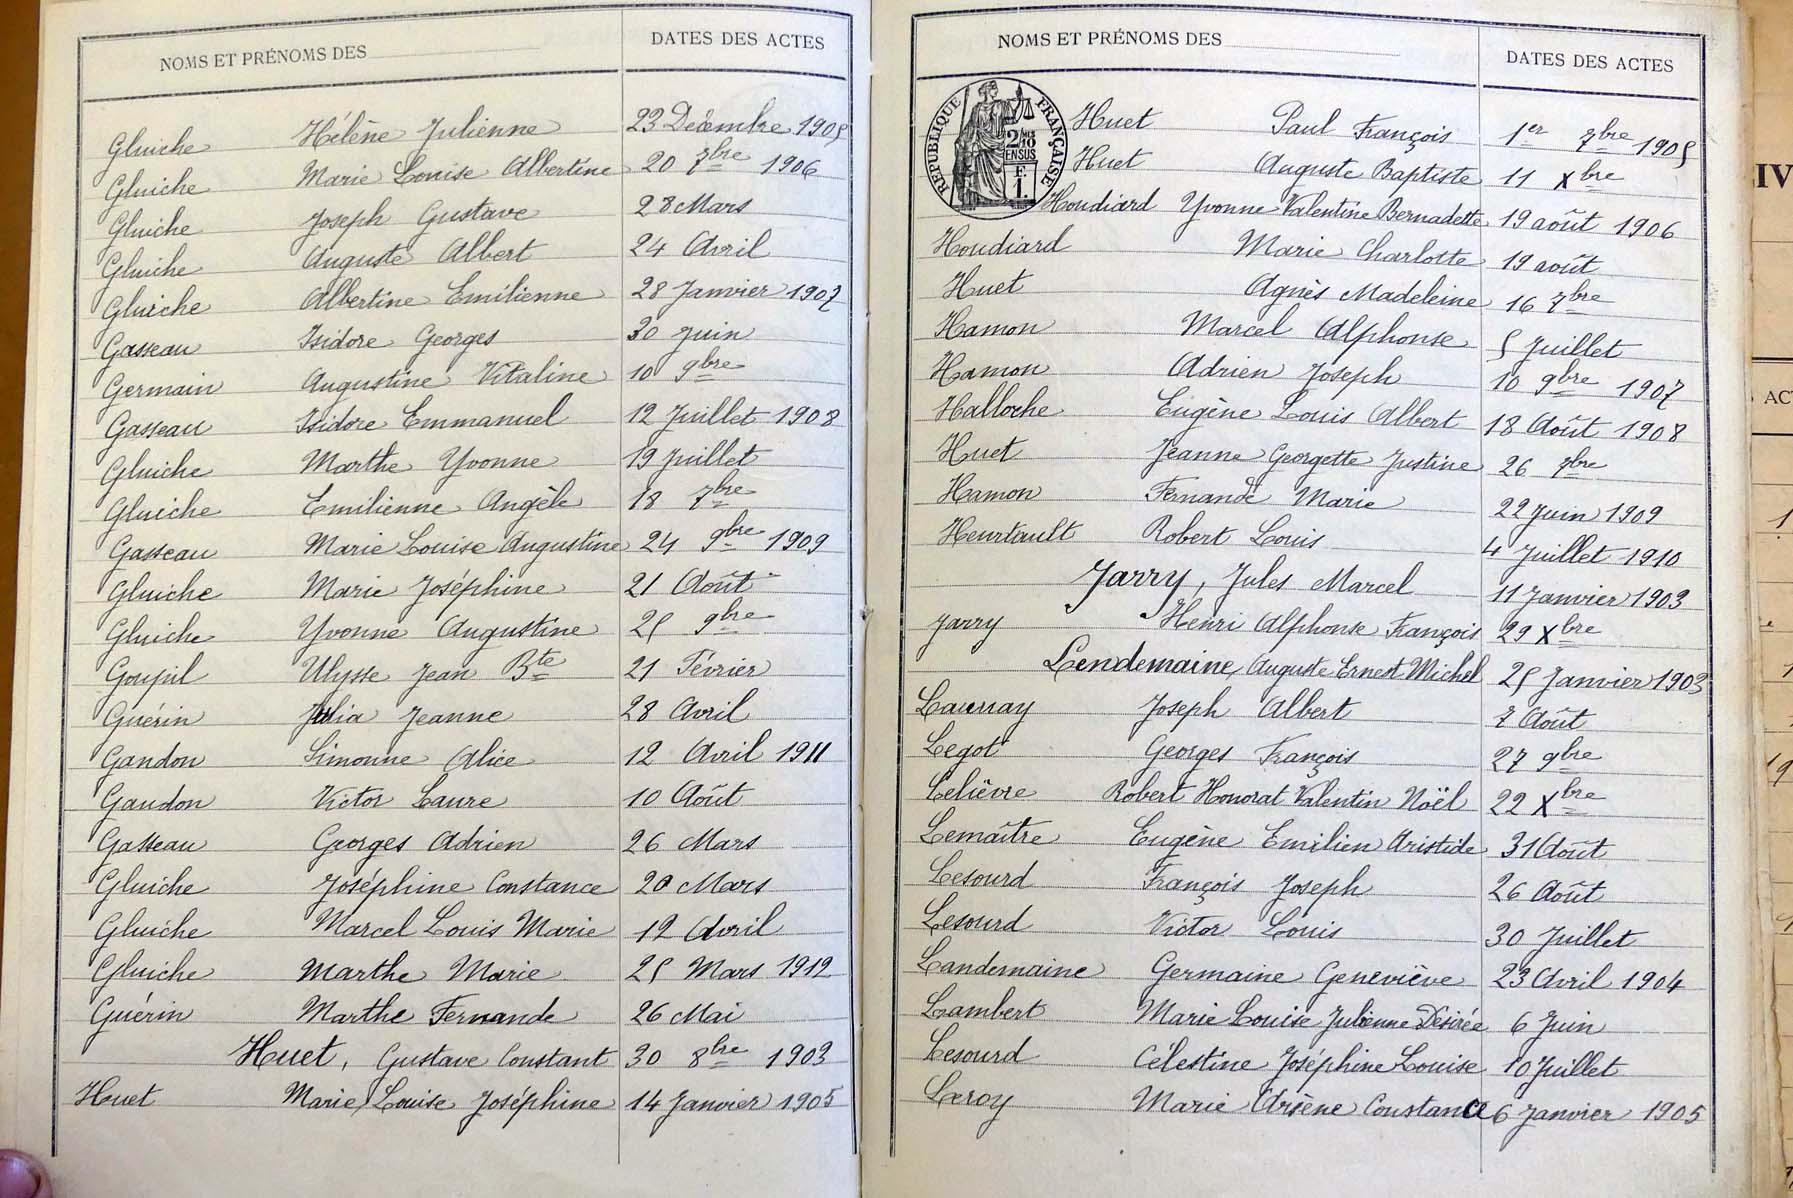 NOMS ET PRÉNOMS DES DATES DES ACTES
Gluiche Hélène Julienne 23 Décembre 1905
Gluiche Marie Louise Albertine 20 7bre 1906
Gluiche Joseph Gustave 28 Mars
Gluiche Auguste Albert 24 Avril
Gluiche Albertine Emilienne 28 Janvier 1907
Gasseau Isidore Georges 30 Juin
Germain Augustine Vitaline 10 9bre
Gasseau Isidore Emmanuel 12 Juillet 1908
Gluiche Marthe Yvonne 19 Juillet
Gluiche Emilienne Angèle 18 7bre
Gasseau Marie Louise Augustine 24 9bre 1909
Gluiche Marie Joséphine 21 Août
Gluiche Yvonne Augustine 25 9bre
Goupil Ulysse Jean Bte 21 Février
Guérin Julia Jeanne 28 Avril
Gandon Simonne Alice 12 Avril 1911
Gandon Victor Laure 10 Août
Gasseau Georges Adrien 26 Mars
Gluiche Joséphine Constance 20 Mars
Gluiche Marcel Louis Marie 12 Avril
Gluiche Marthe Marie 25 Mars 1912
Guérin Marthe Fernande 26 Mai
Huet, Gustave Constant 30 8bre 1903
Huet Marie Louise Joséphine 14 Janvier 1905
NOMS ET PRÉNOMS DES DATES DES ACTES
RÉPUBLIQUE FRANÇAISE
2/10 EN SUS
F.
1.
Huet Paul François 1er 7bre 1905
Huet Auguste Baptiste 11 Xbre
Houdiard Yvonne Valentine Bernadette 19 août 1906
Houdiard Marie Charlotte 19 août
Huet Agnès Madeleine 16 7bre
Hamon Marcel Alphonse 5 Juillet
Hamon Adrien Joseph 10 9bre 1907
Halloche Eugène Louis Albert 18 Août 1908
Huet Jeanne Georgette Justine 26 7bre
Hamon Fernande Marie 22 Juin 1909
Heurtault Robert Louis 4 Juillet 1910
Jarry, Jules Marcel 11 Janvier 1903
Jarry Henri Alphonse François 29 Xbre
Lendemaine, Auguste Ernest Michel 25 Janvier 1903
Launay Joseph Albert 2 Août
Legot Georges François 27 9bre
Lelièvre Robert Honorat Valentin Noël 22 Xbre
Lemaître Eugène Emilien Aristide 31 Août
Lesourd François Joseph 26 Août
Lesourd Victor Louis 30 Juillet
Landemaine Germaine Geneviève 23 Avril 1904
Lambert Marie Louise Julienne Désirée 6 Juin
Lesourd Célestine Joséphine Louise 10 Juillet
Leroy Marie Arsène Constance 6 Janvier 1905